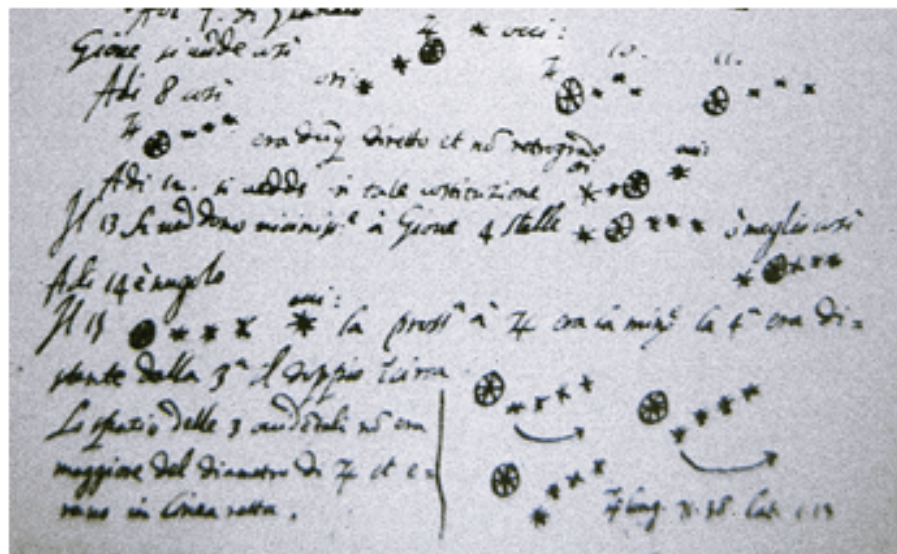 Adi 7. di Gennaio
Gione si vedde così
♃ * occi:
Adi 8 così
ori
♃ 10. 11.
♃ era dūq diretto et nō retrogrado
Adi 12. si vedde in tale costituzione ori occi
Il 13 si veddono à Gione 4 stelle ò meglio così
Adi 14 è nugolo
Il 15 occi: la prossª à ♃ era la minª la 4ª era di=
stante dalla 3ª il doppio circa
Lo spazio delle 3 nō era
maggiore del diametro di ♃ et e=
rano in linea retta.
♃ long. 71.38. lat. 1.13